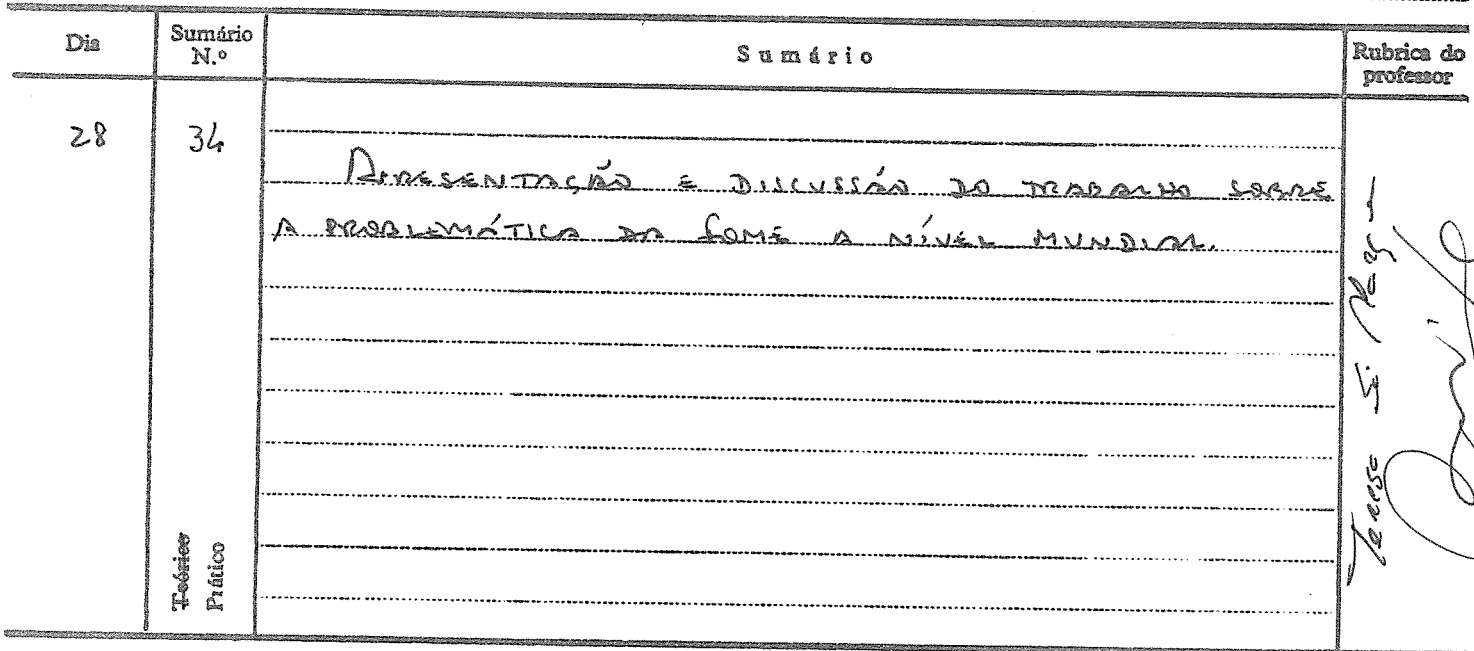 Dia
Sumário N.º
Sumário
Rubrica do professor
28
34
APRESENTAÇÃO E DISCUSSÃO DO TRABALHO SOBRE
A PROBLEMÁTICA DA FOME A NÍVEL MUNDIAL.
Teórico
Prático
Teresa